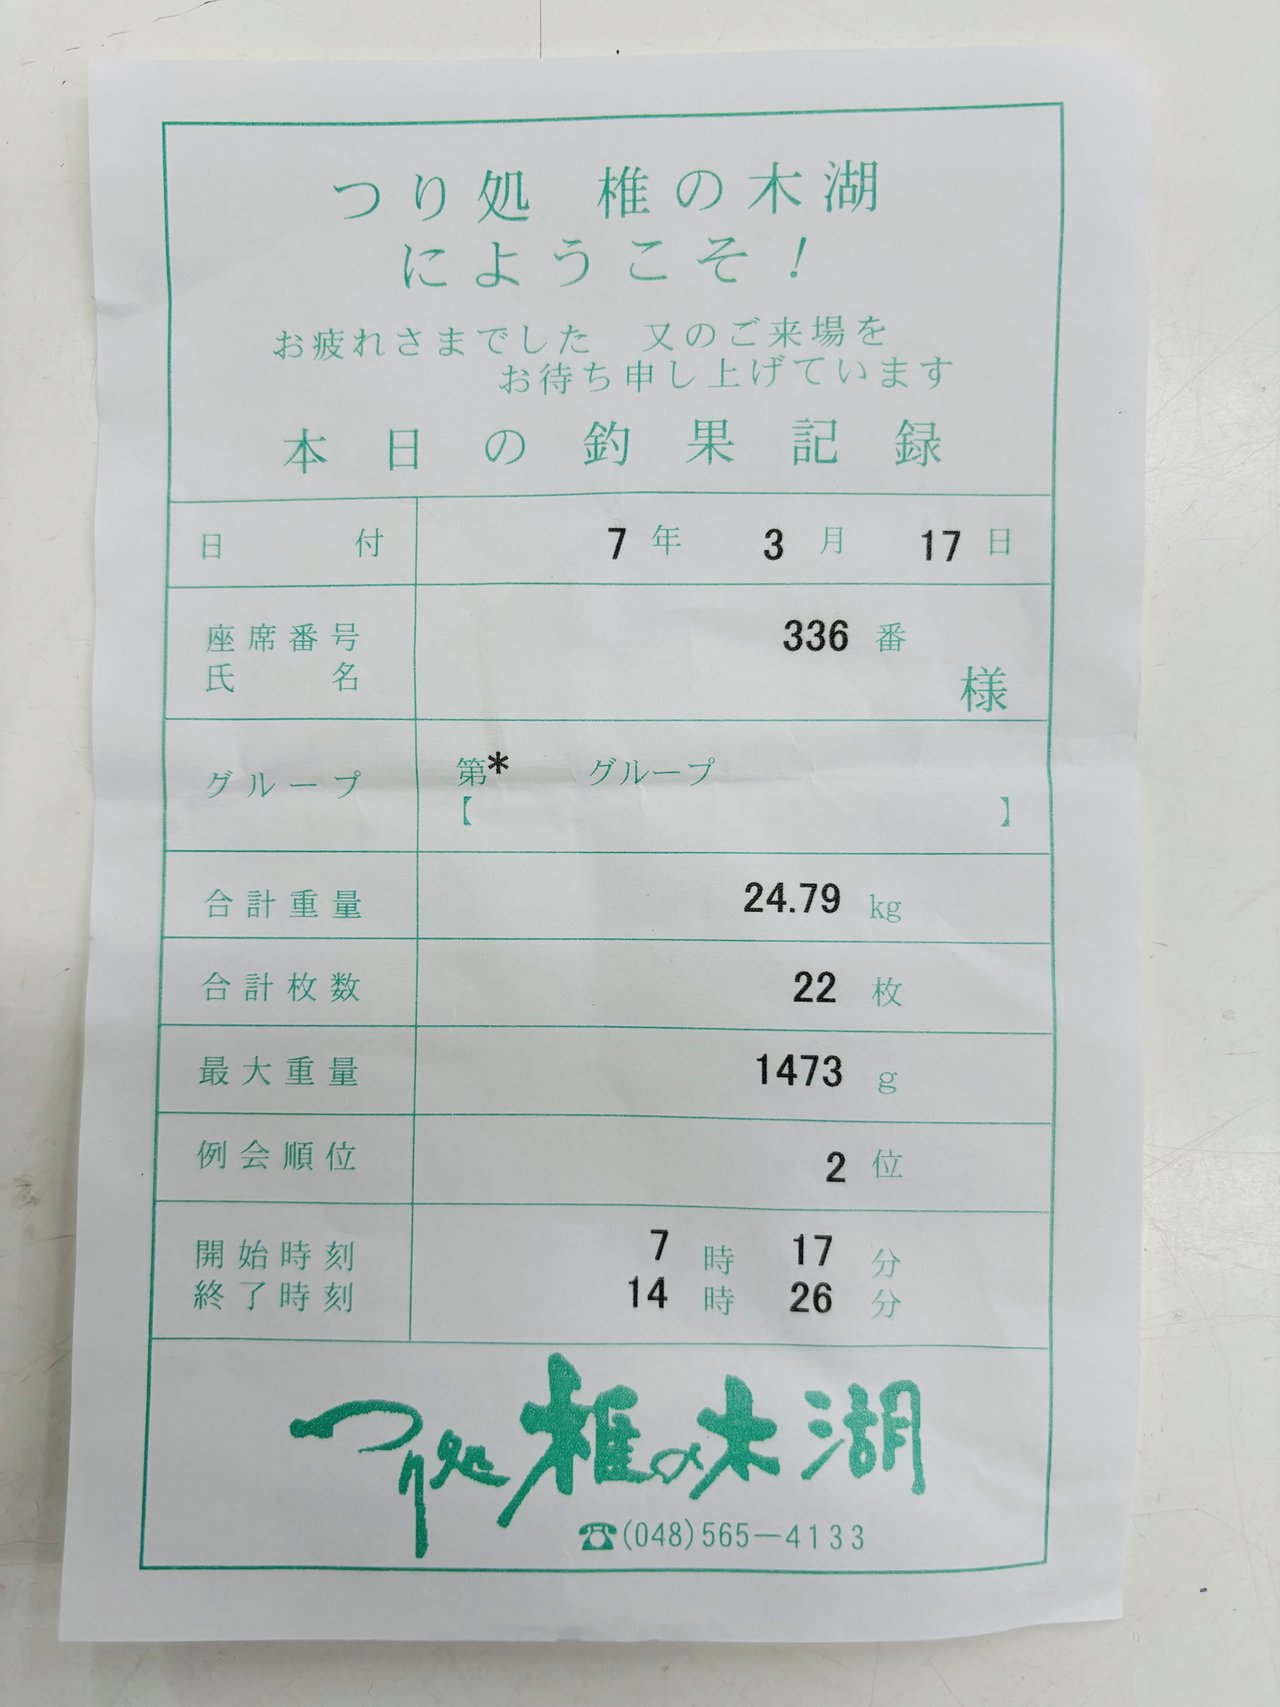 つり処 椎の木湖
にようこそ！
お疲れさまでした 又のご来場を
お待ち申し上げています
本日の釣果記録
日付 7年 3月 17日
座席番号 336番
氏名 様
グループ 第* グループ
【 】
合計重量 24.79 kg
合計枚数 22 枚
最大重量 1473 g
例会順位 2 位
開始時刻 7 時 17 分
終了時刻 14 時 26 分
つり処 椎の木湖
☎(048)565－4133